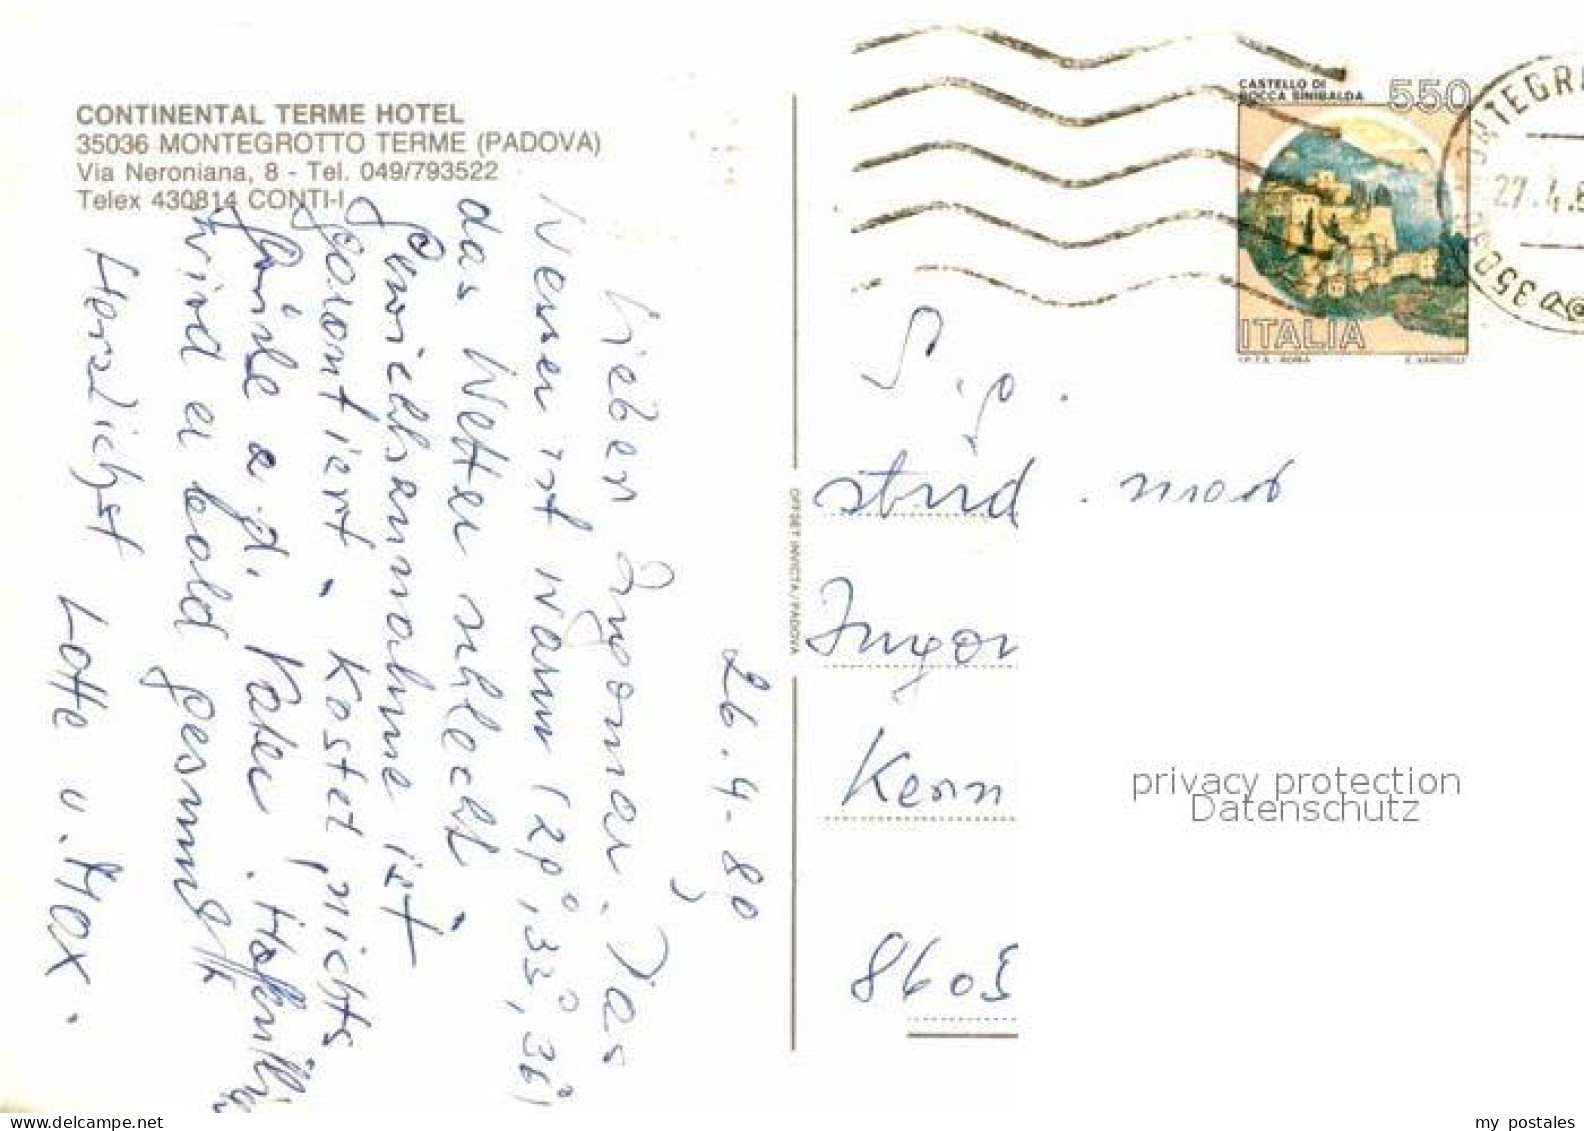 CONTINENTAL TERME HOTEL
35036 MONTEGROTTO TERME (PADOVA)
Via Neroniana, 8 - Tel. 049/793522
Telex 430814 CONTI-I
26.4.89
Lieber Ingomar, Das
Wasser ist warm (29°, 33°, 36°)
das Wetter schlecht.
Gewichtsannahme ist
garantiert. Kostet nichts
Grüße a. d. Vater. Hoffentlich
wird er bald gesund
Herzlichst Lotte u. Max.
OFFSET INVICTA / PADOVA
CASTELLO DI
ROCCA SINIBALDA
550
ITALIA
I.P.Z.S. - ROMA
E. VANGELLI
27.4.8
35036
Sig.
stud.
Ingom
Kenn
8605
privacy protection
Datenschutz
my postales